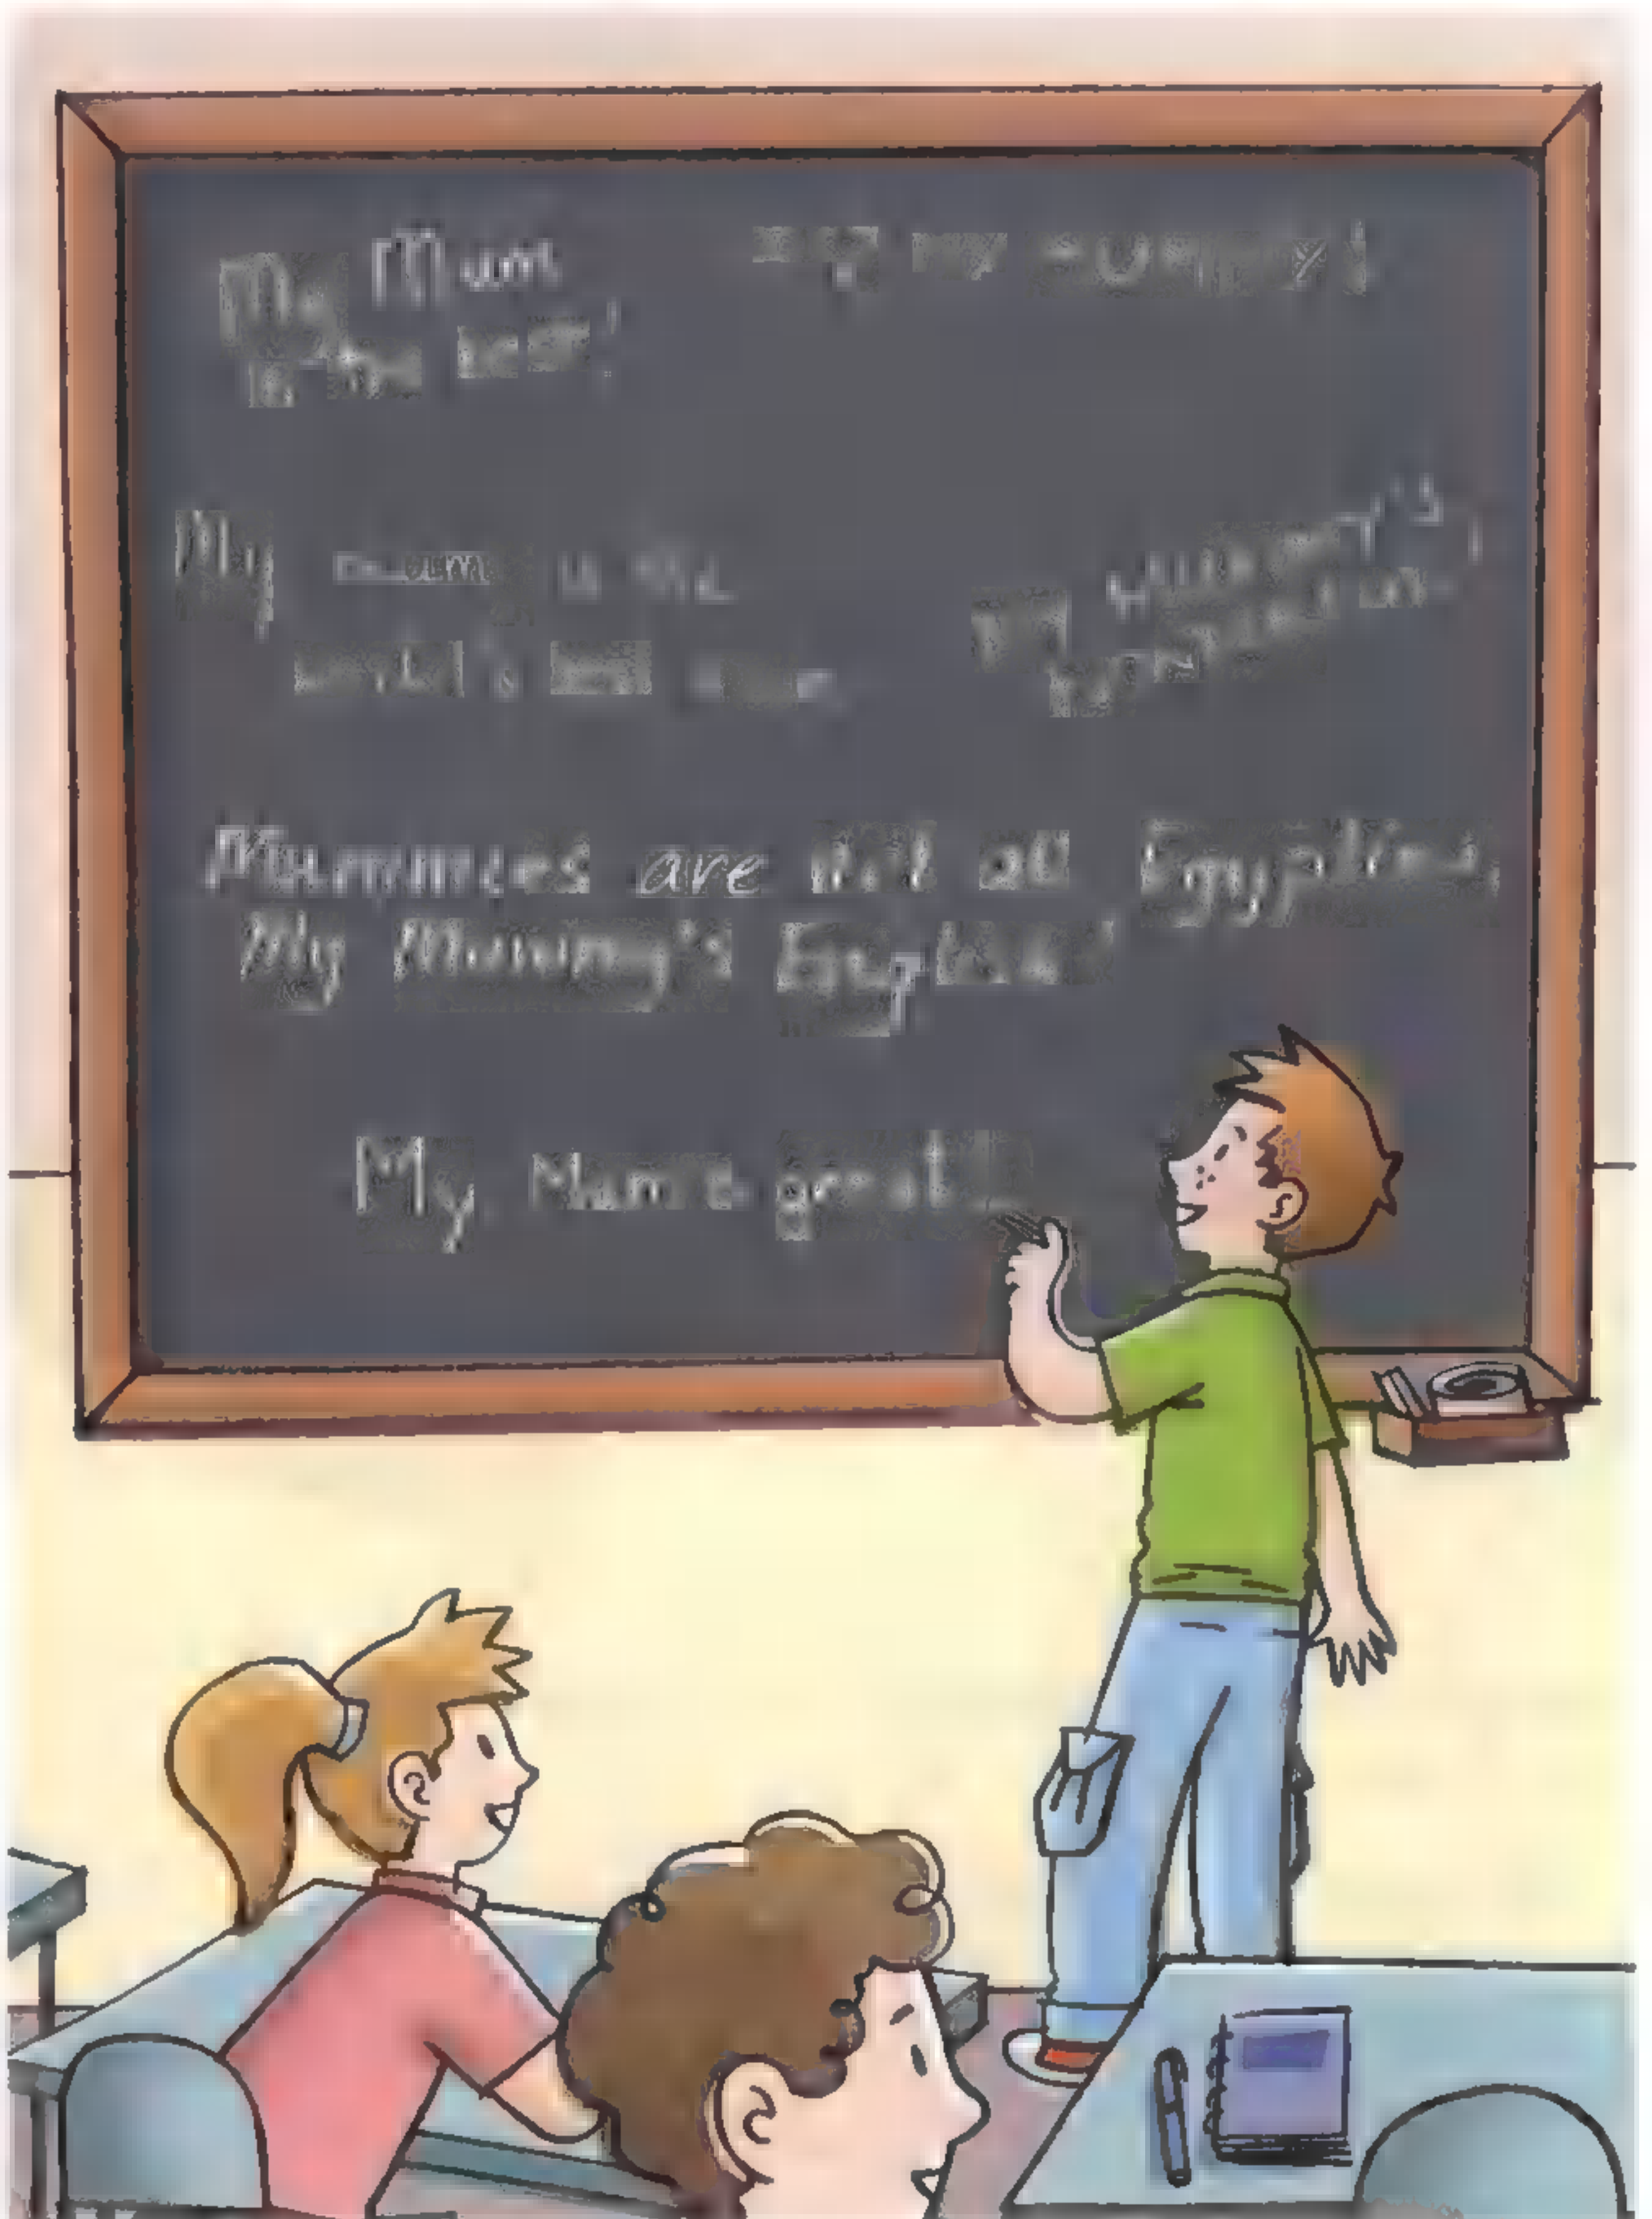 My Mum
is the best!
my mummy!
My mummy is the
world's best
My mummy's
Mummies are not all Egyptian,
My Mummy's English!
My Mum's great